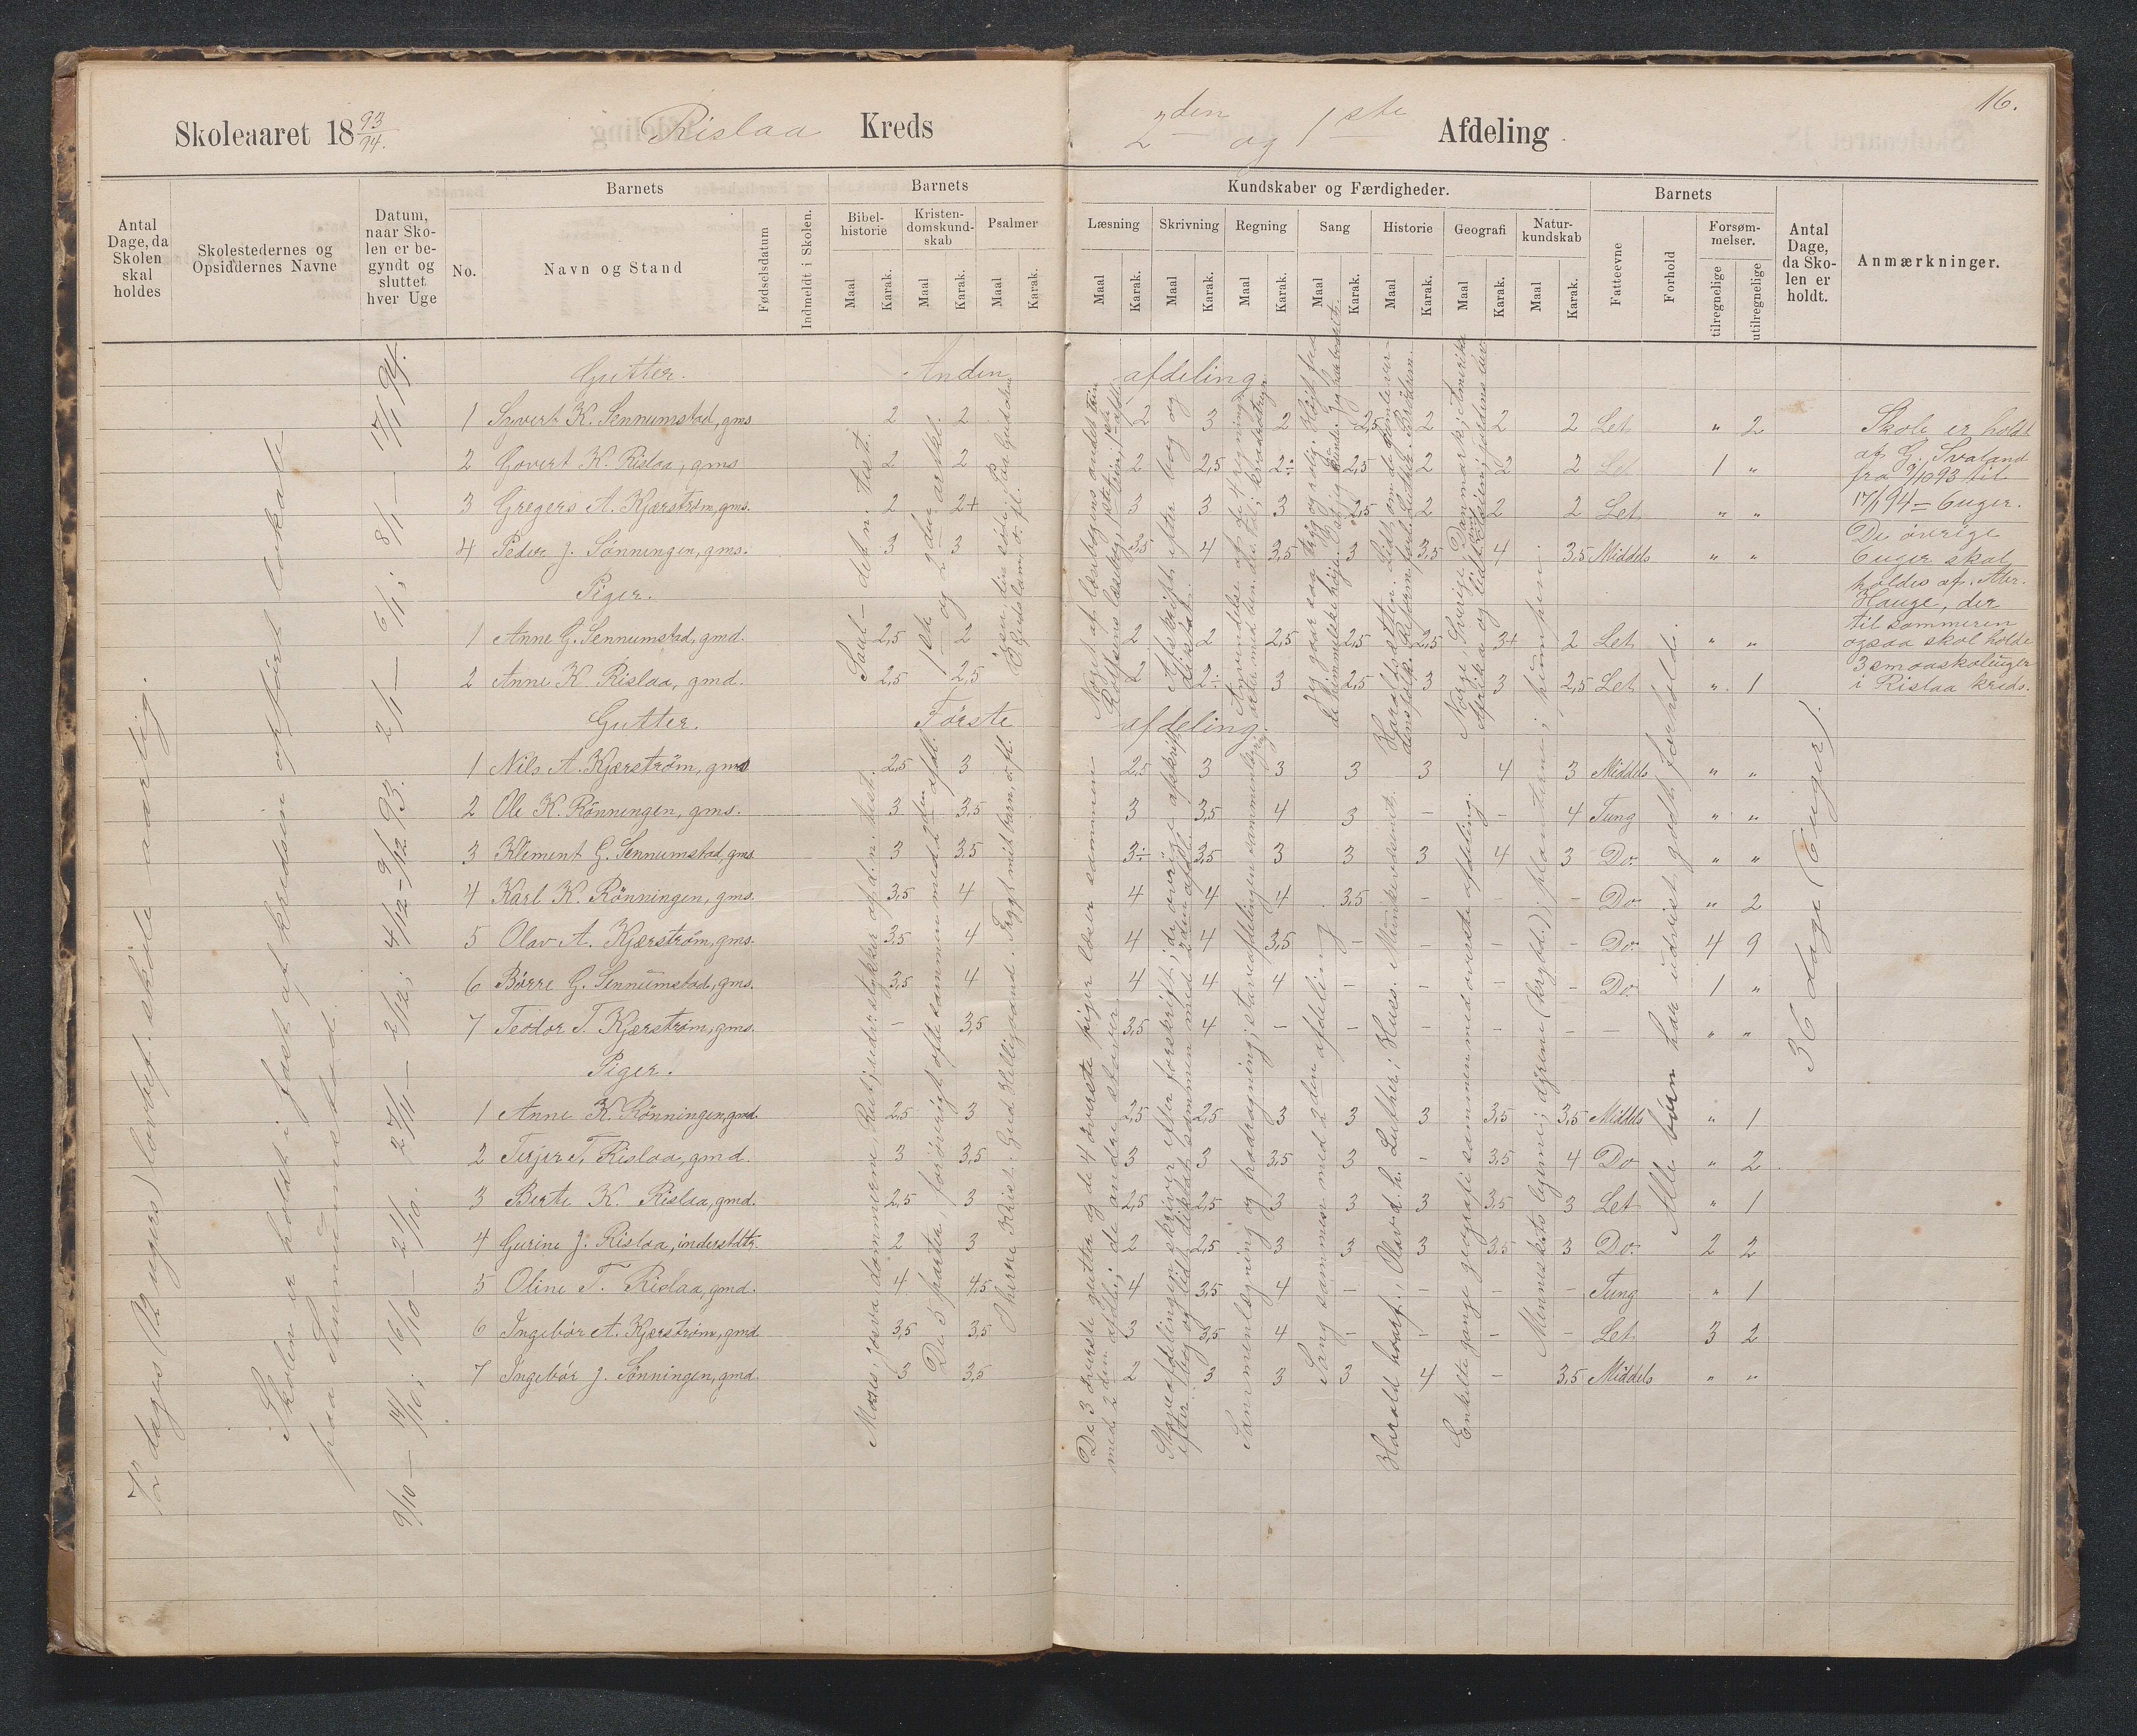 16.
Skoleaaret 18 93/94. Rislaa Kreds 2den og 1ste Afdeling.
Antal Dage, da Skolen skal holdes
Skolestedernes og Opsiddernes Navne
Datum, naar Skolen er begyndt og sluttet hver Uge
Barnets
No. Navn og Stand Fødselsdatum Indmeldt i Skolen.
Barnets
Bibelhistorie Maal Karak. Kristendomskundskab Maal Karak. Psalmer Maal Karak.
Kundskaber og Færdigheder.
Læsning Maal Karak. Skrivning Maal Karak. Regning Maal Karak. Sang Maal Karak. Historie Maal Karak. Geografi Maal Karak. Naturkundskab Maal Karak.
Barnets
Fatteevne Forhold Forsømmelser. tilregnelige utilregnelige
Antal Dage, da Skolen er holdt.
Anmærkninger.
72 dages (12 ugers) lovbef. skole aarlig.
Skolen er holdt i fast af kredsen opført lokale
paa Sennumstad.
9/10 — 14/10; 16/10 — 21/10. 27/11 — 2/12; 4/12 - 9/12 93. 2/1 — 6/1; 8/1 — 17/1 94.
Gutter. Anden afdeling.
1 Syvert K. Sennumstad, gms 2 2 2 3 2 2,5 2 2 2 Let " 2
2 Govert K. Rislaa, gms 2 2 2 2,5 2÷ 2,5 2 2 2 Let 1 "
3 Gregers A. Kjærstrøm, gms. 2 2+ 3 3 3 2,5 2 2 2 Let " "
4 Peder J. Sønningen, gms. 3 3 3,5 4 3,5 3 3,5 4 3,5 Middels " "
Piger.
1 Anne G. Sennumstad, gmd. 2,5 2 2 2 2,5 2,5 2,5 3+ 2 Let " "
2 Anne K Rislaa, gmd. 2,5 2,5 2 2÷ 3 2,5 3 3 2,5 Let " 1
Gutter. Første afdeling.
1 Nils A. Kjærstrøm, gms 2,5 3 2,5 3 3 3 3 4 3 Middels " "
2 Ole K. Rönningen, gms. 3 3,5 3 3,5 4 3 - - 4 Tung " "
3 Klement G. Sennumstad, gms 3 3,5 3÷ 3,5 3 3 3 4 3 Do. " "
4 Karl K. Rönningen, gms. 3,5 4 4 4 4 3,5 - - - Do. " 2
5 Olav A. Kjærstrøm, gms. 3,5 4 4 4 3,5 - - - - Do. 4 9
6 Börre G. Sennumstad, gms. 3,5 4 4 4 4 - - - - Do. 1 "
7 Teodor T. Kjærstrøm, gms. - 3,5 3,5 4 - - - - - - " "
Piger.
1 Anne K. Rönningen, gmd. 2,5 3 2,5 2,5 3 3 3 3,5 3,5 Middels " 1
2 Terjer T. Rislaa, gmd. 3 3,5 3 3 3,5 3 - 3,5 4 Do " 2
3 Berte K. Rislaa, gmd. 2,5 3 2,5 2,5 3 3 3 3,5 3 Let " 1
4 Gurine J. Rislaa, inderstdtr. 2 3 2 2,5 3 3 3 3,5 3 Do. 2 2
5 Oline T. Rislaa, gmd. 4 4,5 4 3,5 4 - - - - Tung " 1
6 Ingebör A. Kjærstrøm, gmd. 3,5 3,5 3 3,5 4 - - - - Let 3 2
7 Ingebör J. Sönningen, gmd. 3 3,5 2 3 3 3 4 - 3,5 Middels " "
Saul — det n. test.
1ste og 2den artkl.
Moses, josva dommerne, Rut; jødestykker af d. n. test.
De 3 parter, forövrigt ofte sammen med 2den afdl.
O herre Krist. Gud Helligaand. Trygt mit barn, o. fl.
De 3 øverste gutter og de 4 øverste piger læser sammen
med 2den afdl.; de andre staver.
Sammenlægning og fradragning; staveafdelingen sammenlægning
Sang sammen med 2den afdeling
Harald haarf., Olav d. h. Luther; Huss. Munkevæsenet.
Enkelte gange geografi sammen med øverste afdeling.
Menneskets legeme; dyrene (krybd.); planterne; himmelen.
Alle börn har udvist godt forhold.
36 dage (6 uger).
Skole er holdt
af G. Svaland
fra 9/10 93 til
17/1 94 = 6 uger.
De øvrige
6 uger skal
holdes af. Ater.
Hauge, der
til sommeren
ogsaa skal holde
3 smaaskoleuger
i Rislaa kreds.